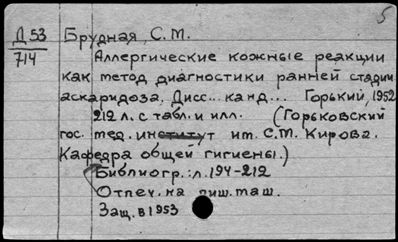 5
Д 53 Брудная, С.М.
714
Аллергические кожные реакции
как метод диагностики ранней стадии
аскаридоза. Дисс... канд... Горький, 1952
212 л. с табл. и илл. (Горьковский
гос. мед. институт им. С.М. Кирова.
Кафедра общей гигиены.)
Библиогр.: л. 194-212
Отпеч. на пиш. маш.
Защ. в 1953